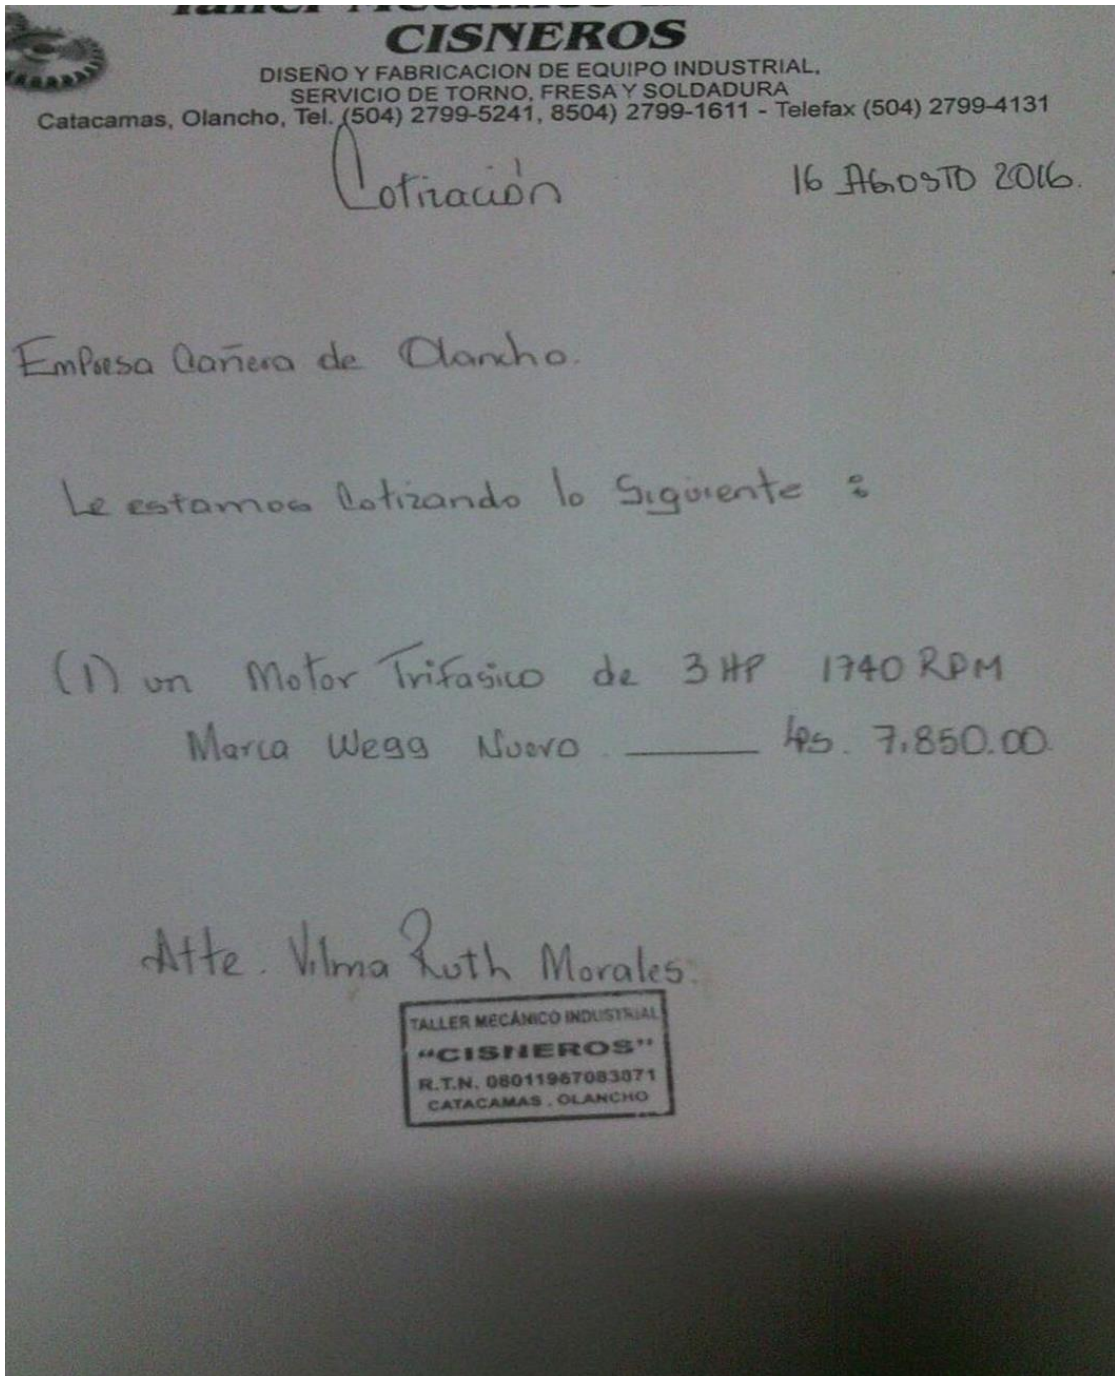 Taller Mecánico
CISNEROS
DISEÑO Y FABRICACION DE EQUIPO INDUSTRIAL,
SERVICIO DE TORNO, FRESA Y SOLDADURA
Catacamas, Olancho, Tel. (504) 2799-5241, 8504) 2799-1611 - Telefax (504) 2799-4131
Cotización
16 AGOSTO 2016.
Empresa Cañera de Olancho.
Le estamos Cotizando lo Siguiente :
(1) un Motor Trifasico de 3 HP 1740 RPM
Marca Wegg Nuevo. ——— Lps. 7,850.00
Atte. Vilma Ruth Morales.
TALLER MECÁNICO INDUSTRIAL
"CISNEROS"
R.T.N. 08011967083871
CATACAMAS, OLANCHO